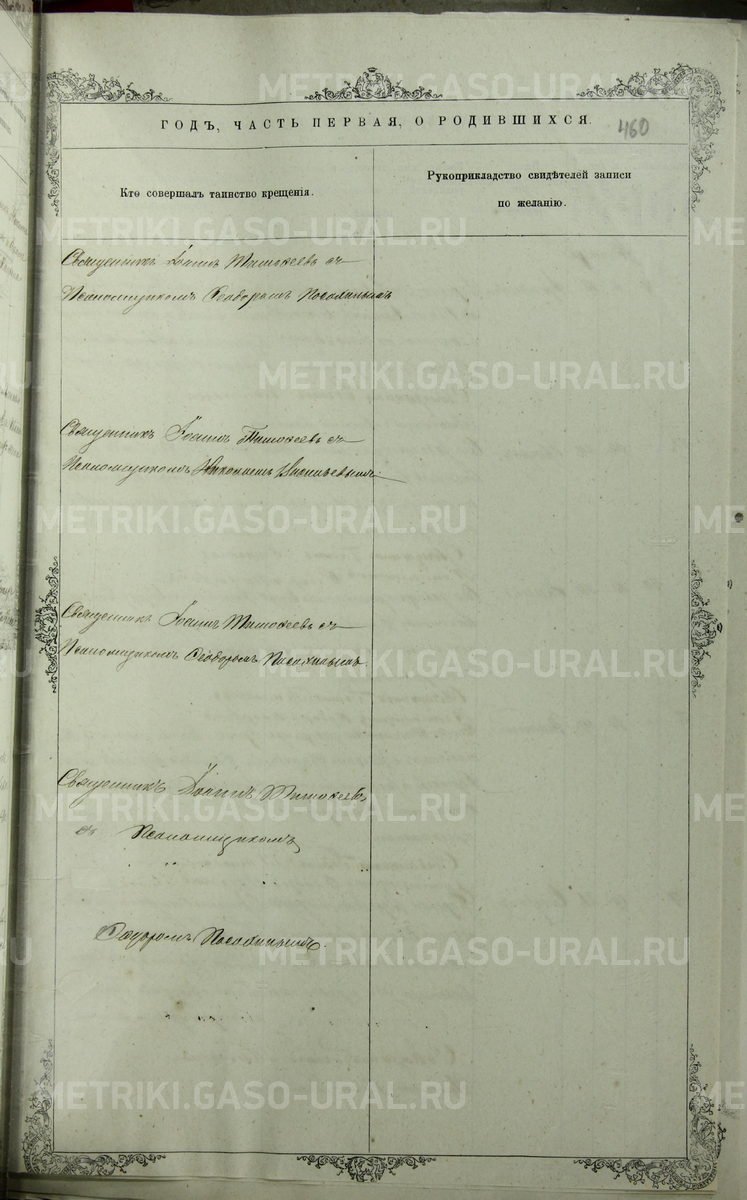 ГОДЪ, ЧАСТЬ ПЕРВАЯ, О РОДИВШИХСЯ.
460
Кто совершалъ таинство крещенія.
Рукоприкладство свидѣтелей записи
по желанію.
Священникъ Іоаннъ Тимоѳеевъ съ
Псаломщикомъ Ѳеодоромъ
Священникъ Іоаннъ Тимоѳеевъ съ
Псаломщикомъ Николаемъ
Священникъ Іоаннъ Тимоѳеевъ съ
Псаломщикомъ Ѳеодоромъ
Священникъ Іоаннъ Тимоѳеевъ
съ Псаломщикомъ
Ѳеодоромъ
METRIKI.GASO-URAL.RU